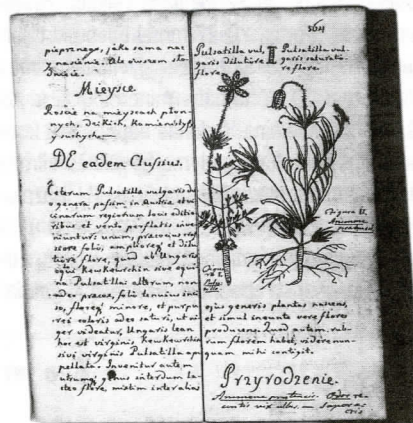 pieprznego, jáka sama nas
y nasienie. Ale owszem sło
Mieysce
Roscie na mieyscach płon-
nych, dzikich, kamienistych
y suchych.
DE eadem Clusius.
Cæterum Pulsatilla vulgaris du
o genera passim in Austriæ et vi
cinarum regionum locis editio
ribus et vento perflatis inve
niuntur: unum, præcocius
siore folio, amplioreq. et dilu
tiore flore, quod ab Ungaris
Keukeurchin sive equi
na Pulsatilla: alterum, non
adeo præcox, folio tenuiu inci
so, floreq. minore, et purpu
rei coloris adeo saturi, ut ni
ger videatur, Ungaris lean
hor est virginis Keukeurchin
sivi virginis Pulsatilla ap
pellata. Inveni autem
utrumq. genus interdum la
cteo flore, mixtim inter alias
564
Pulsatilla vul,
garis dilutiore
flore.
II Pulsatilla vul-
garis saturatio
re flore.
Figura I.
Figura II.
Anemone
pratensis
ejus generis plantas nascens,
et simul ineunte vere flores
producens. Quod autem rub-
rum florem habet, videre nun-
quam mihi contigit.
Przyrodzenie.
Anemone pratensis. Odor re-
centis vix ullus. Sapor a-
cris